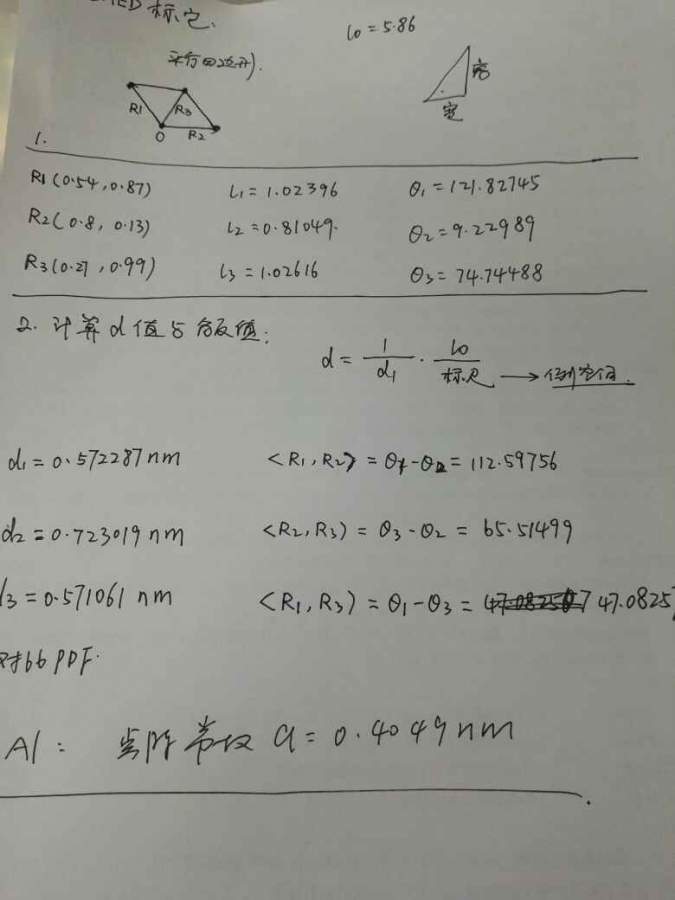 标定.
l0 = 5.86
平行四边形).
R1 R3 R2 O
高
宽
1.
R1(0.54, 0.87) L1 = 1.02396 θ1 = 121.82745
R2(0.8, 0.13) L2 = 0.81049. θ2 = 9.22989
R3(0.27, 0.99) L3 = 1.02616 θ3 = 74.74488
2. 计算d值与 值:
d = 1/d1 · l0/标尺 → 倒空间.
d1 = 0.572287 nm <R1, R2> = θ1-θ2 = 112.59756
d2 = 0.723019 nm <R2, R3) = θ3-θ2 = 65.51499
3 = 0.571061 nm <R1, R3) = θ1-θ3 = 47.0825
对bb PDF.
Al: 点阵常数 a = 0.4049 nm